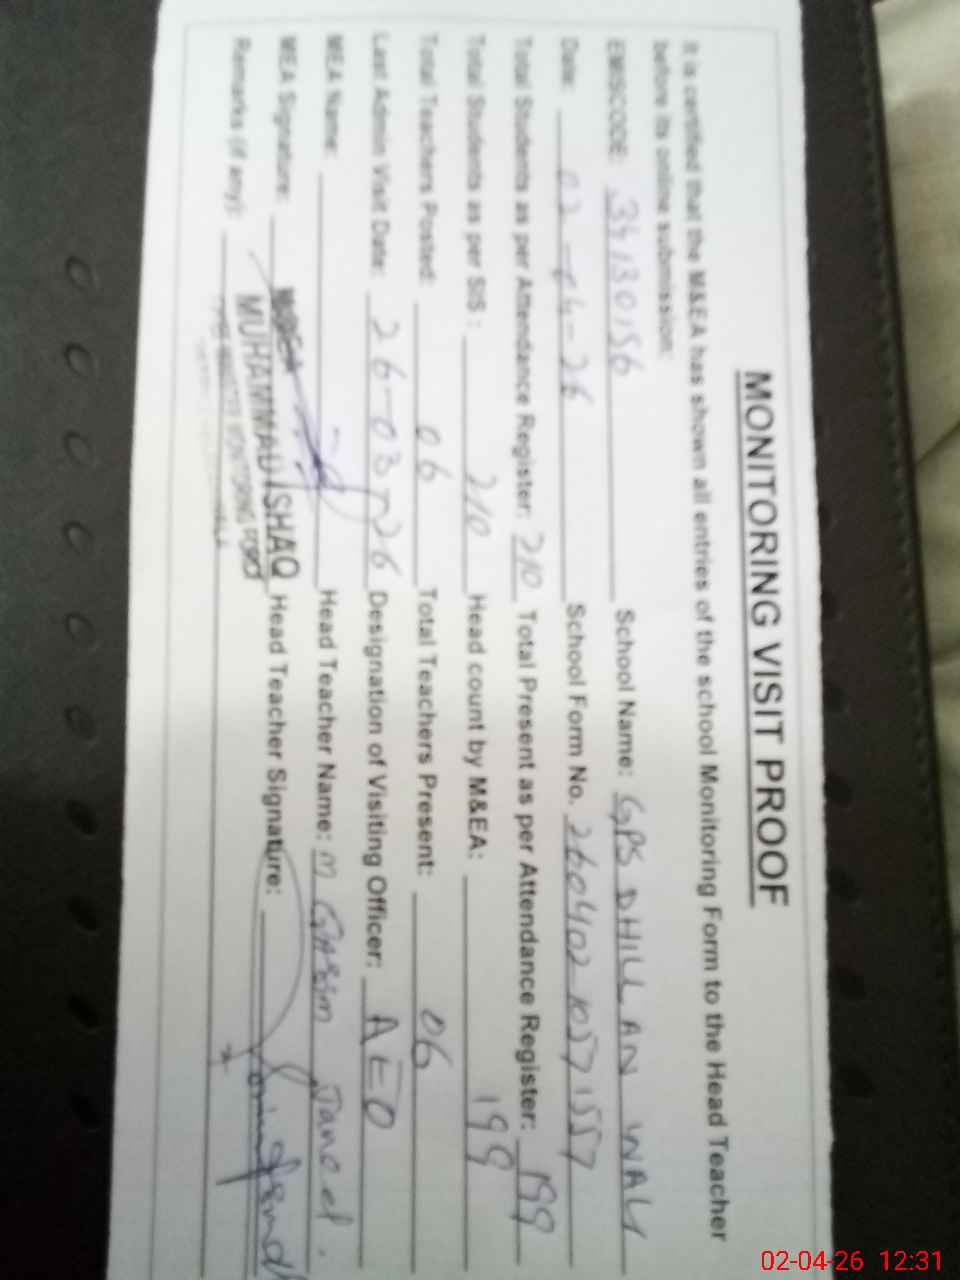 MONITORING VISIT PROOF
It is certified that the M&EA has shown all entries of the school Monitoring Form to the Head Teacher
before its online submission:
EMISCODE: 34130156 School Name: GPS DHILLAN WALI
Date: 02-04-26 School Form No. 26040210571557
Total Students as per Attendance Register: 210 Total Present as per Attendance Register: 199
Total Students as per SIS: 210 Head count by M&EA: 199
Total Teachers Posted: 06 Total Teachers Present: 06
Last Admin Visit Date: 26-03-26 Designation of Visiting Officer: AEO
MEA Name: Head Teacher Name: M
MEA Signature: MUHAMMAD ISHAQ Head Teacher Signature:
Remarks (if any):
02-04-26 12:31